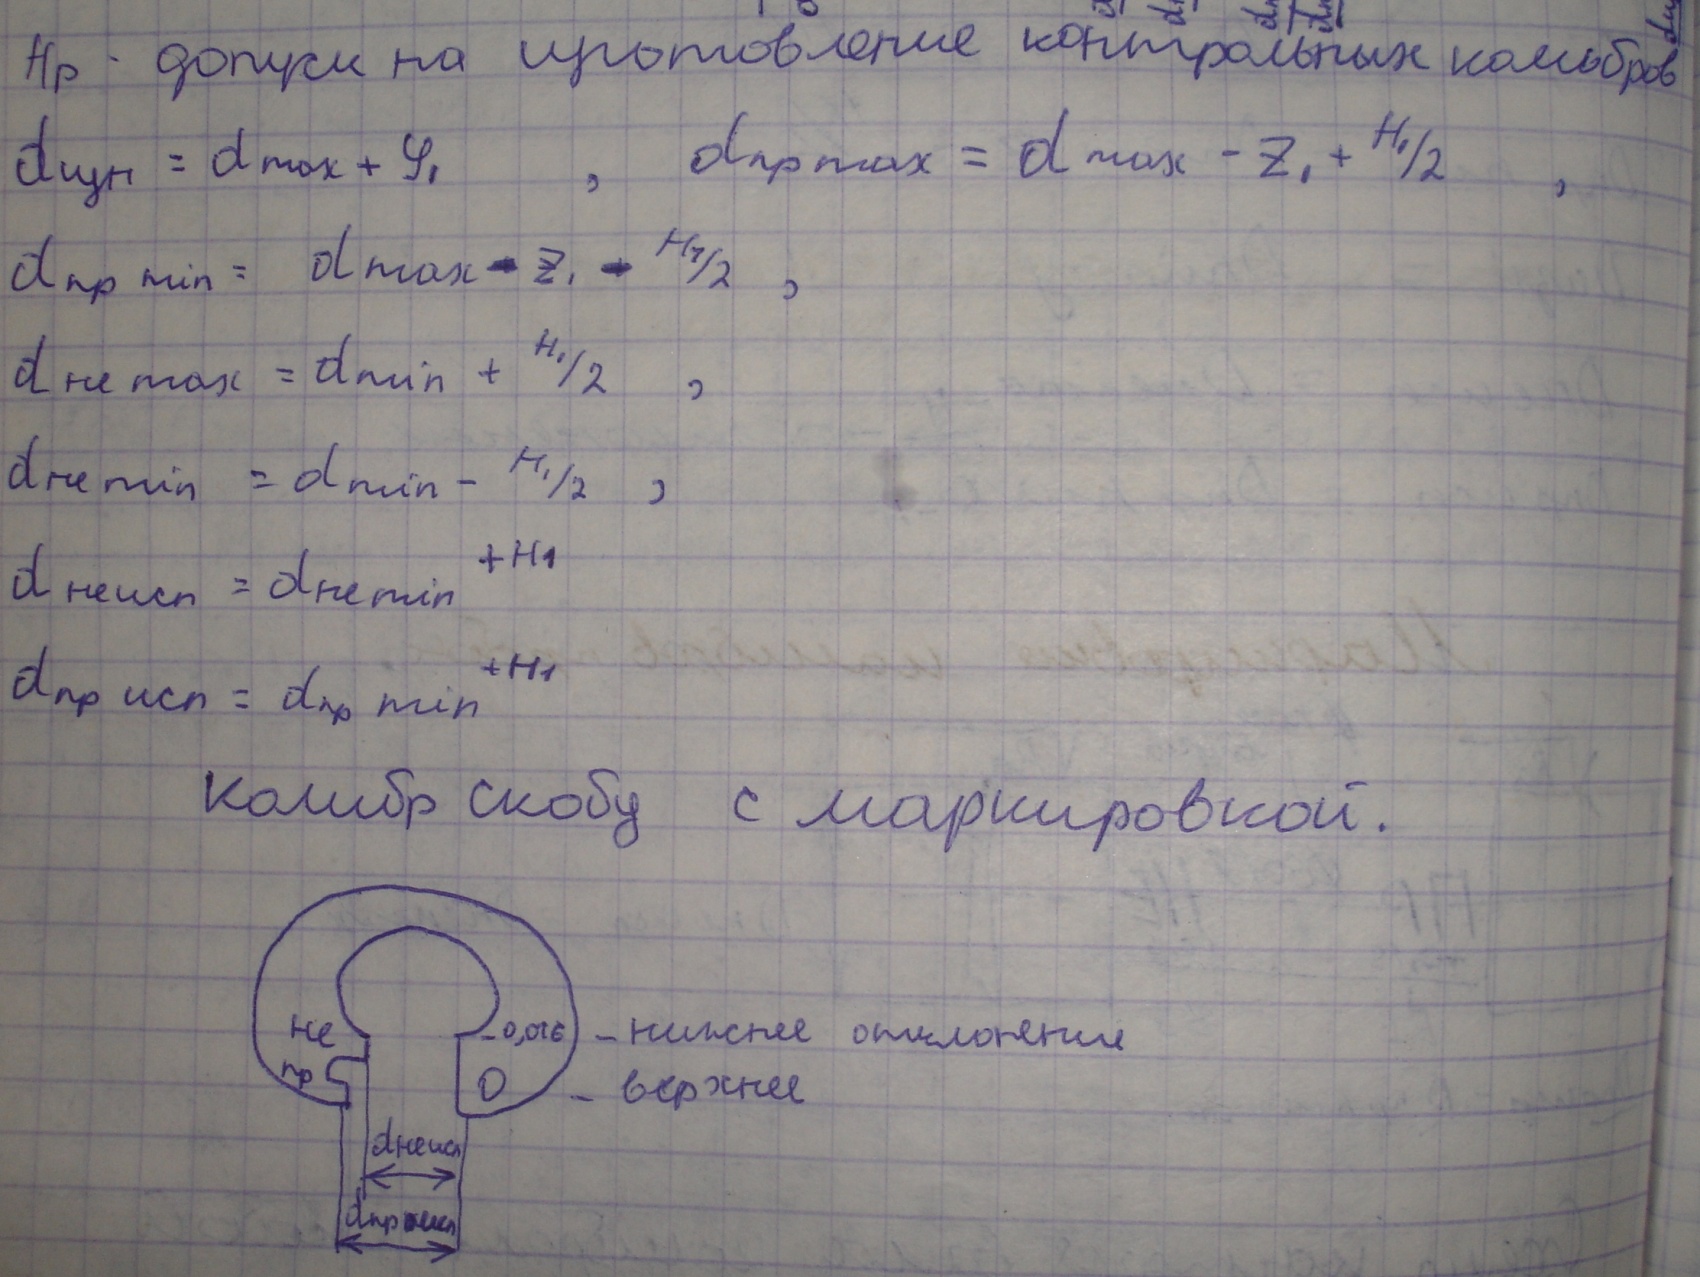 Hр - допуски на изготовление контрольных калибров
dизн = d max + y₁ , dпр max = d max - Z₁ + H₁/2 ,
dпр min = d max - Z₁ - H₁/2 ,
dне max = d min + H₁/2 ,
dне min = d min - H₁/2 ,
dне исп = dне min +H1
dпр исп = dпр min +H1
Калибр скобу с маркировкой.
не -0,016 - нижнее отклонение
пр 0 - верхнее
dне исп
dпр исп